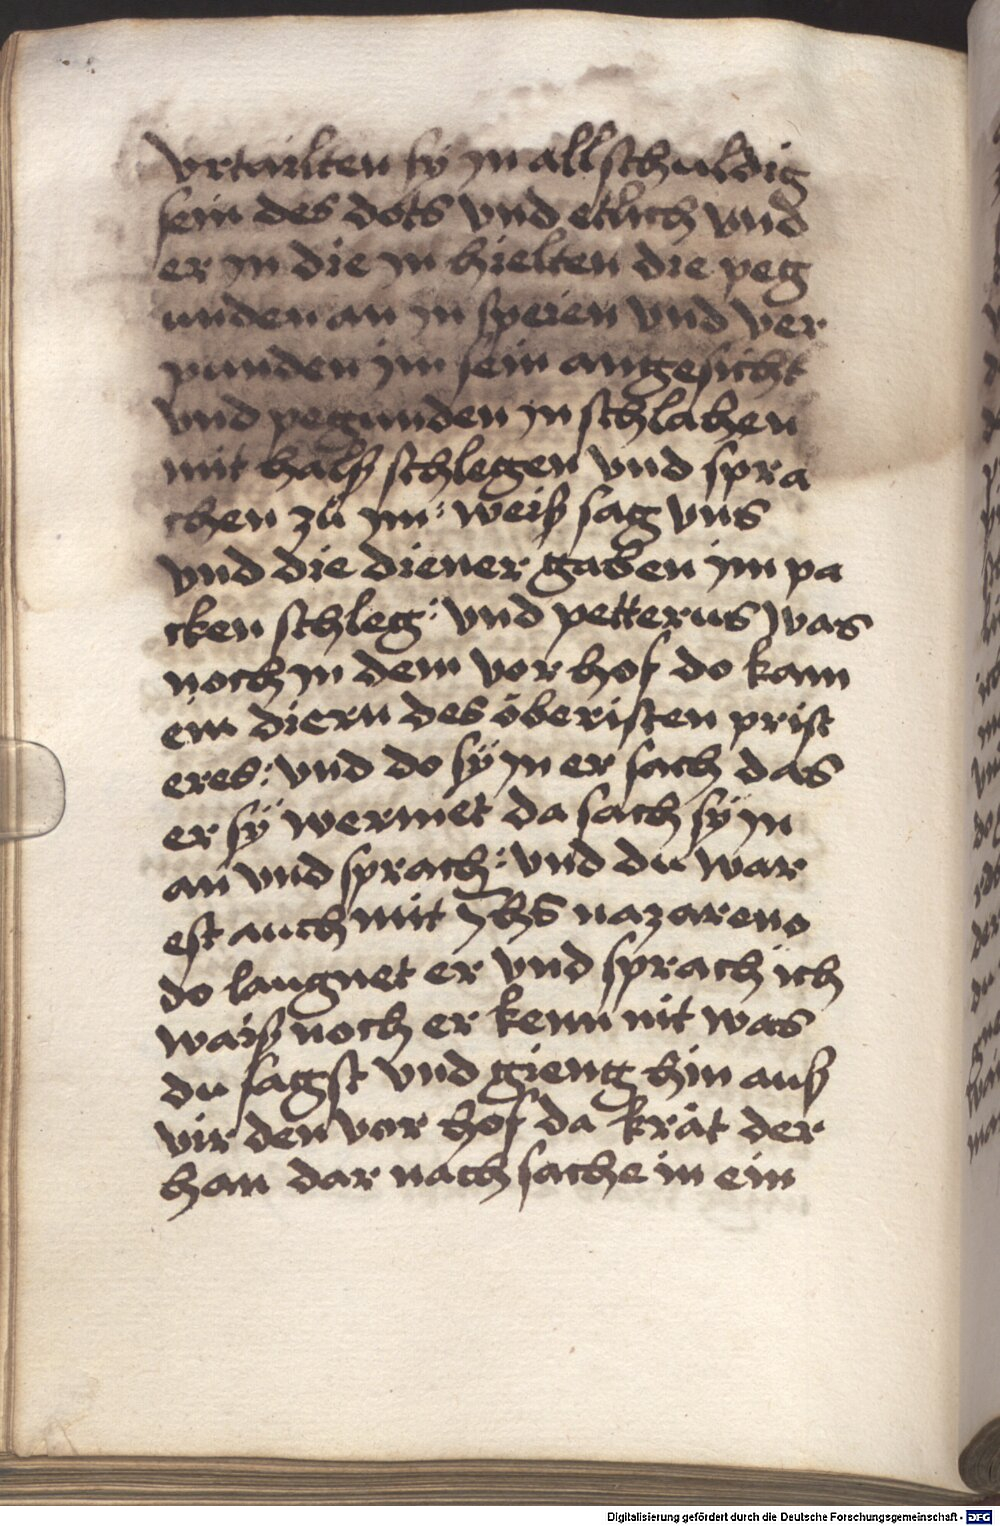 vrtailten sÿ in all schuldig
sein des dots vnd etlich vnd
er in die in hielten die peg
unden an in speien vnd ver
punden im sein angesicht
vnd pegunden in schlahen
mit halß schlegen vnd spra
chen zů im: weiß sag vns
vnd die diener gaben im pa
cken schleg: vnd petterus was
noch in dem vor hof do kam
ein diern des öberisten prist
eres: vnd do sÿ in er sach das
er sÿ wermet da sach sÿ in
an vnd sprach: vnd du war
est auch mit Jhs nazareno
do laugnet er vnd sprach ich
waiß noch er kenn nit was
du sagst vnd gieng hin auß
vir den vor hof da krät der
han dar nach sache in ein
Digitalisierung gefördert durch die Deutsche Forschungsgemeinschaft - DFG